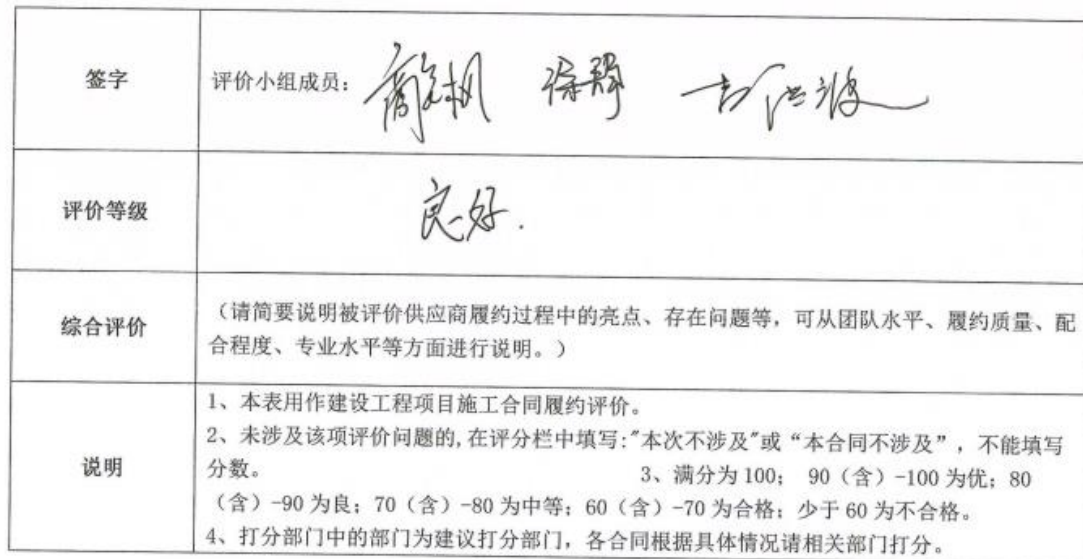 签字
评价小组成员：
评价等级
良好.
综合评价
（请简要说明被评价供应商履约过程中的亮点、存在问题等，可从团队水平、履约质量、配
合程度、专业水平等方面进行说明。）
说明
1、本表用作建设工程项目施工合同履约评价。
2、未涉及该项评价问题的,在评分栏中填写:"本次不涉及"或“本合同不涉及”，不能填写
分数。 3、满分为 100； 90（含）-100 为优；80
（含）-90 为良；70（含）-80 为中等；60（含）-70 为合格；少于 60 为不合格。
4、打分部门中的部门为建议打分部门，各合同根据具体情况请相关部门打分。